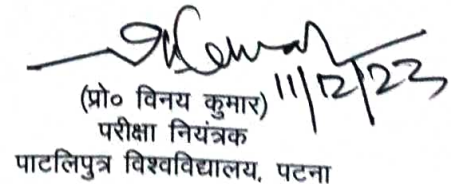 11/12/23
(प्रो० विनय कुमार)
परीक्षा नियंत्रक
पाटलिपुत्र विश्वविद्यालय, पटना